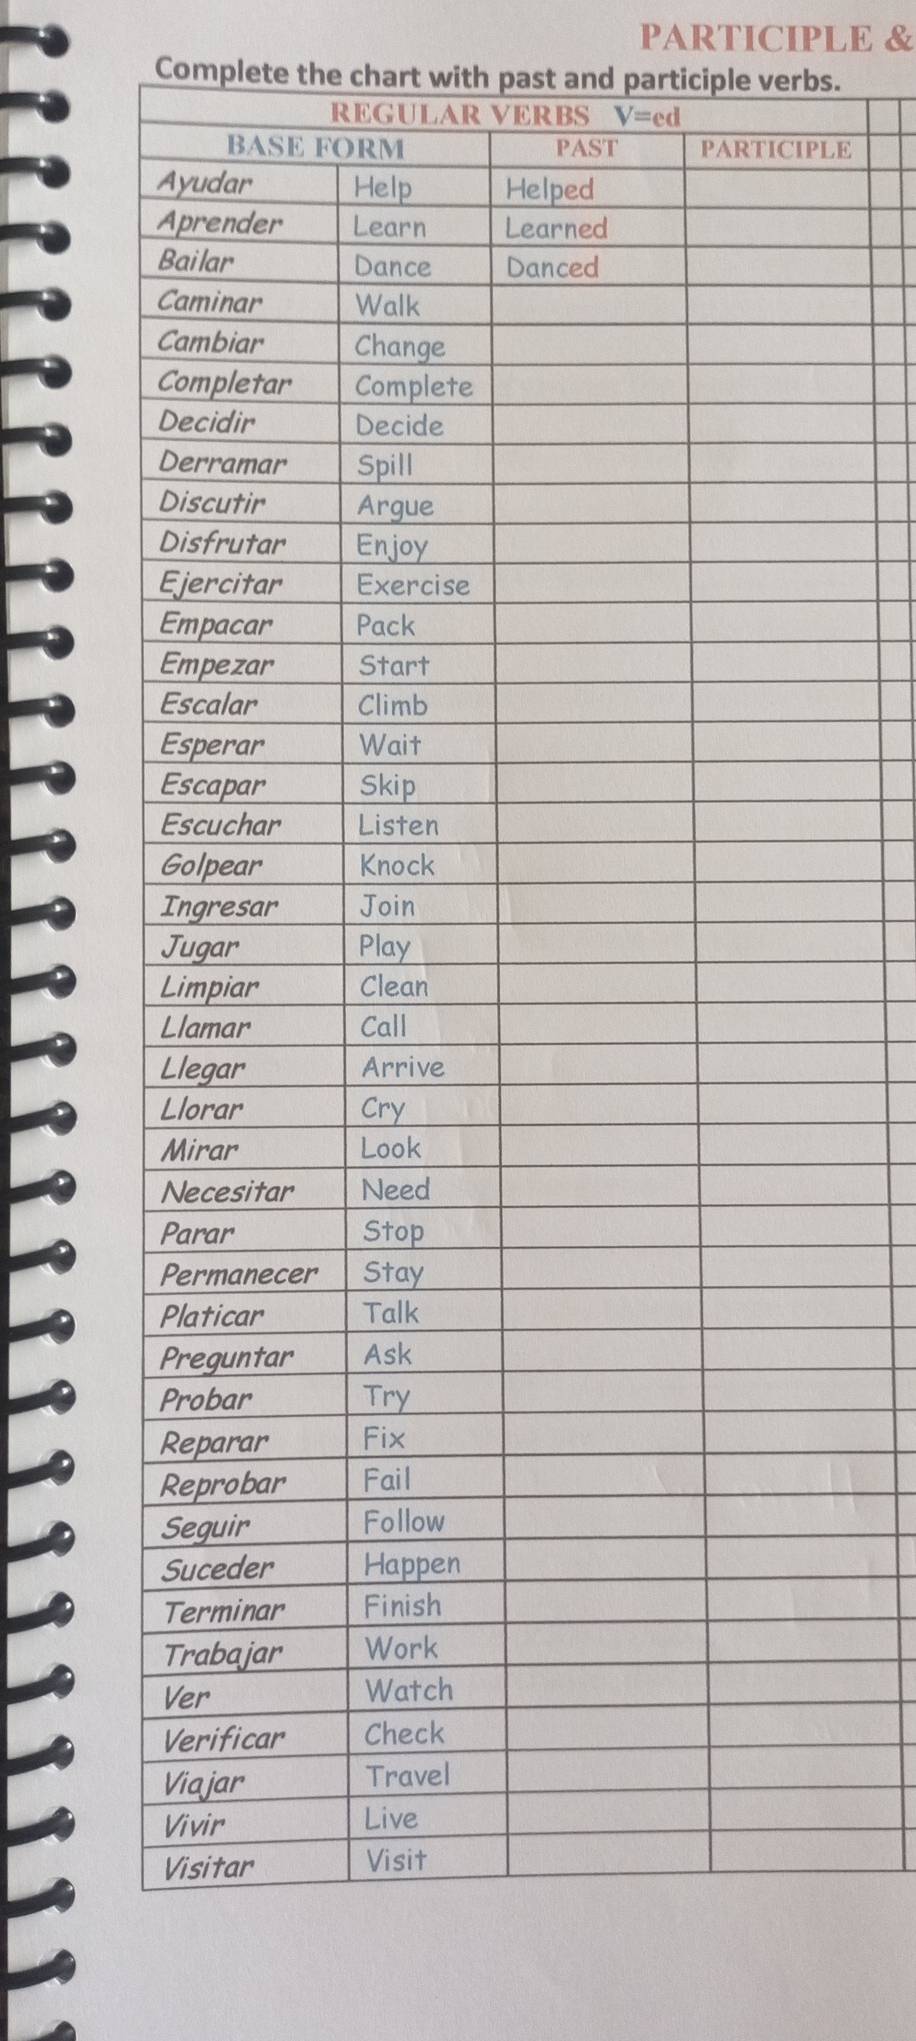 PARTICIPLE &
Complete the chart with past and participle verbs.
REGULAR VERBS V=ed
BASE FORM PAST PARTICIPLE
Ayudar Help Helped
Aprender Learn Learned
Bailar Dance Danced
Caminar Walk
Cambiar Change
Completar Complete
Decidir Decide
Derramar Spill
Discutir Argue
Disfrutar Enjoy
Ejercitar Exercise
Empacar Pack
Empezar Start
Escalar Climb
Esperar Wait
Escapar Skip
Escuchar Listen
Golpear Knock
Ingresar Join
Jugar Play
Limpiar Clean
Llamar Call
Llegar Arrive
Llorar Cry
Mirar Look
Necesitar Need
Parar Stop
Permanecer Stay
Platicar Talk
Preguntar Ask
Probar Try
Reparar Fix
Reprobar Fail
Seguir Follow
Suceder Happen
Terminar Finish
Trabajar Work
Ver Watch
Verificar Check
Viajar Travel
Vivir Live
Visitar Visit